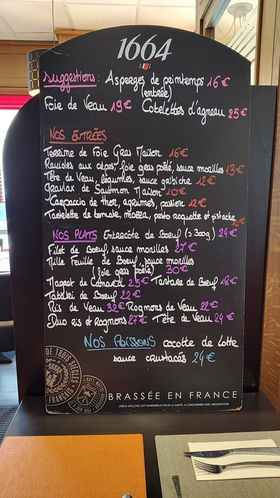 1664
Suggestions : Asperges de printemps 16€
(entrée)
Foie de Veau 19€ Cotelettes d'agneau 25€
NOS ENTRÉES
Terrine de Foie Gras Maison 16€
Ravioles aux cèpes, foie gras poêlé, sauce morilles 13€
Tête de Veau, légumes, sauce gribiche 12€
Gravlax de Saumon Maison 10€
Carpaccio de thon, agrumes, 12€
Tartelette de tomate, mozza, pesto roquette et pistache
NOS PLATS Entrecôte de Boeuf (≥300g) 24€
Filet de Boeuf, sauce morilles 27€
Mille Feuille de Boeuf, sauce morilles
(foie gras poêlé) 30€
Magret de Canard 25€ Tartare de Boeuf 18€
de Boeuf 22€
Ris de Veau 32€ Rognons de Veau 22€
Duo ris et rognons 27€ Tête de Veau 24€
NOS POISSONS cocotte de lotte
sauce crustacés 24€
BRASSÉE EN FRANCE